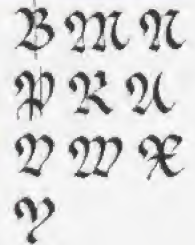 B M N
P R U
V W X
Y